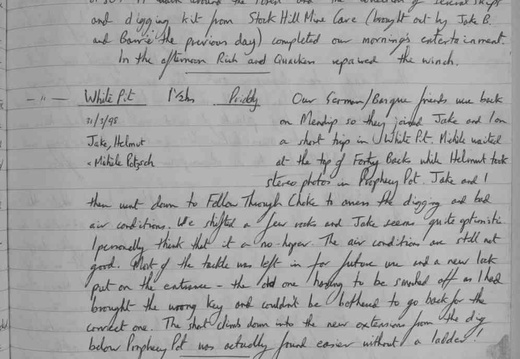 and digging kit from Stock Hill Mine Cave (brought out by Jake B.
and Barrie the previous day) completed our morning's entertainment.
In the afternoon Rich and Quackers repaired the winch.
- " - White Pit Priddy Our German/Basque friends were back
21/2/98 on Mendip so they joined Jake and I on
Jake, Helmut a short trip in White Pit. Michile waited
+ Michile Potzsch at the top of Forty Backs while Helmut took
stereo photos in Prophecy Pot. Jake and I
then went down to Follow Through Choke to assess the digging and bad
air conditions. We shifted a few rocks and Jake seems quite optimistic.
I personally think that it a no-hoper. The air conditions are still not
good. Most of the tackle was left in for future use and a new lock
put on the entrance - the old one having to be smashed off as I had
brought the wrong key and couldn't be bothered to go back for the
correct one. The short climb down into the new extension from the dig
below Prophecy Pot was actually found easier without a ladder!